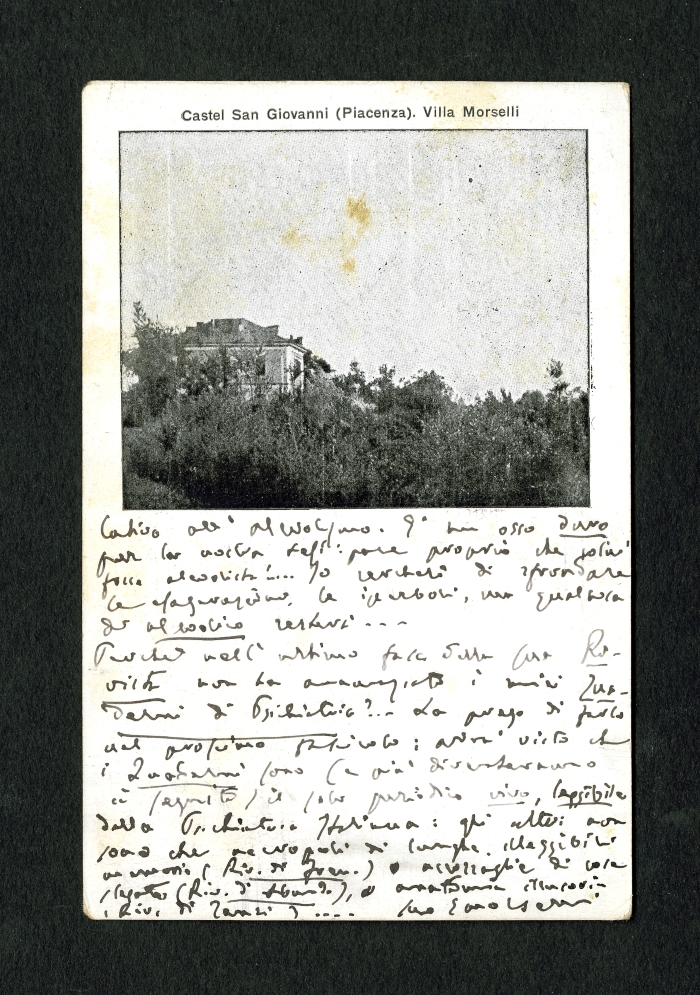 Castel San Giovanni (Piacenza). Villa Morselli
all' alcoolismo. È un osso duro
per la nostra tesi: pare proprio che
fosse alcoolista!... Io cercherò di sfrondare
le esagerazioni, le iperboli, ma qualcosa
di alcoolico resterà ...
Perché nell' ultimo fasc. della sua Ri-
vista non ha annunziato i miei Qua-
derni di Psichiatria?... La prego di farlo
nel prossimo fascicolo; avrà visto che
i Quaderni sono (e più diventeranno
in seguito) il solo periodico vivo, leggibile
della Psichiatria Italiana: gli altri non
sono che necropoli di lunghe illeggibili
memorie (Riv. di Fren.) o accozzaglie di cose
(Riv. di), o anatomia
(Riv. di Tanzi) .... Suo